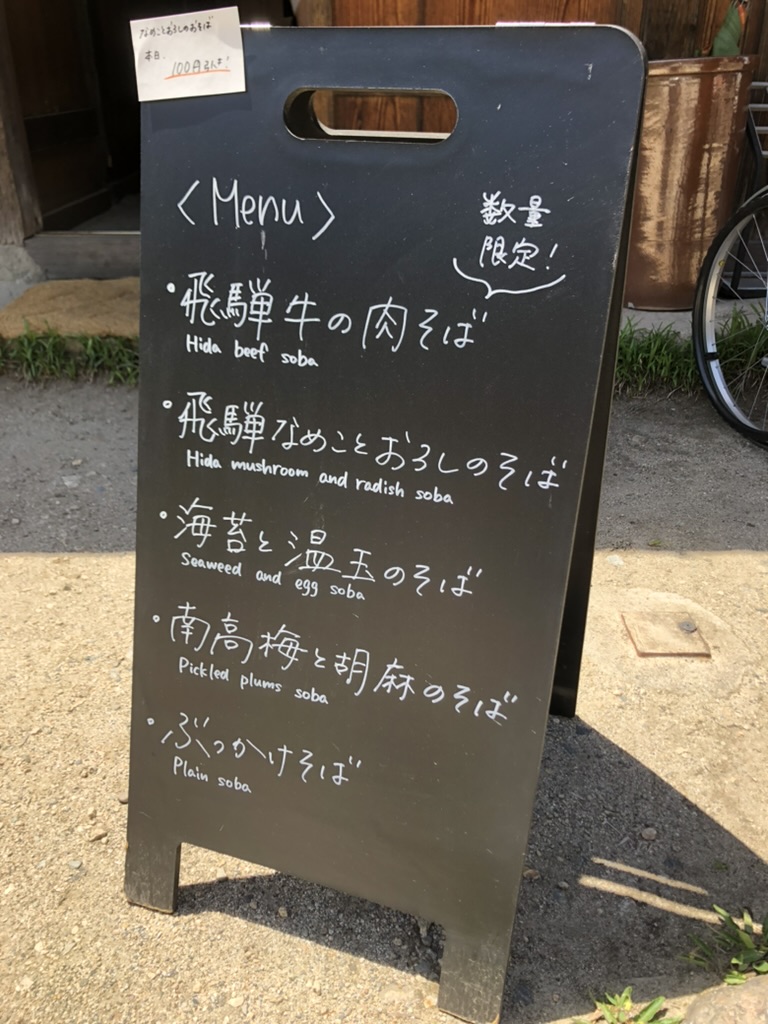 なめことおろしのおそば
本日
100円引き!
〈Menu〉
数量
限定!
・飛騨牛の肉そば
Hida beef soba
・飛騨なめことおろしのそば
Hida mushroom and radish soba
・海苔と温玉のそば
Seaweed and egg soba
・南高梅と胡麻のそば
Pickled plums soba
・ぶっかけそば
Plain soba